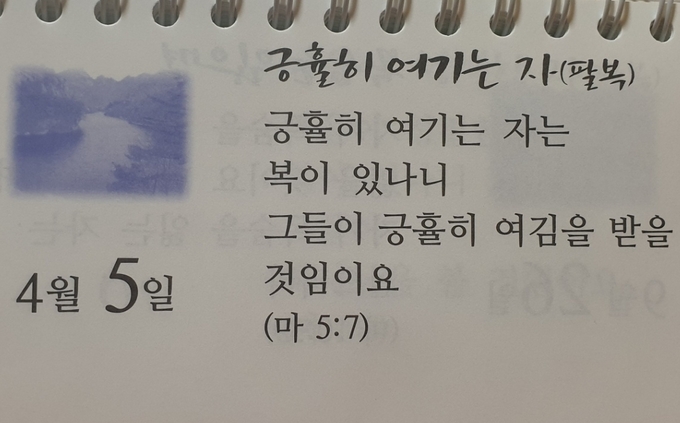 긍휼히 여기는 자(팔복)
긍휼히 여기는 자는
복이 있나니
그들이 긍휼히 여김을 받을
것임이요
(마 5:7)
4월 5일